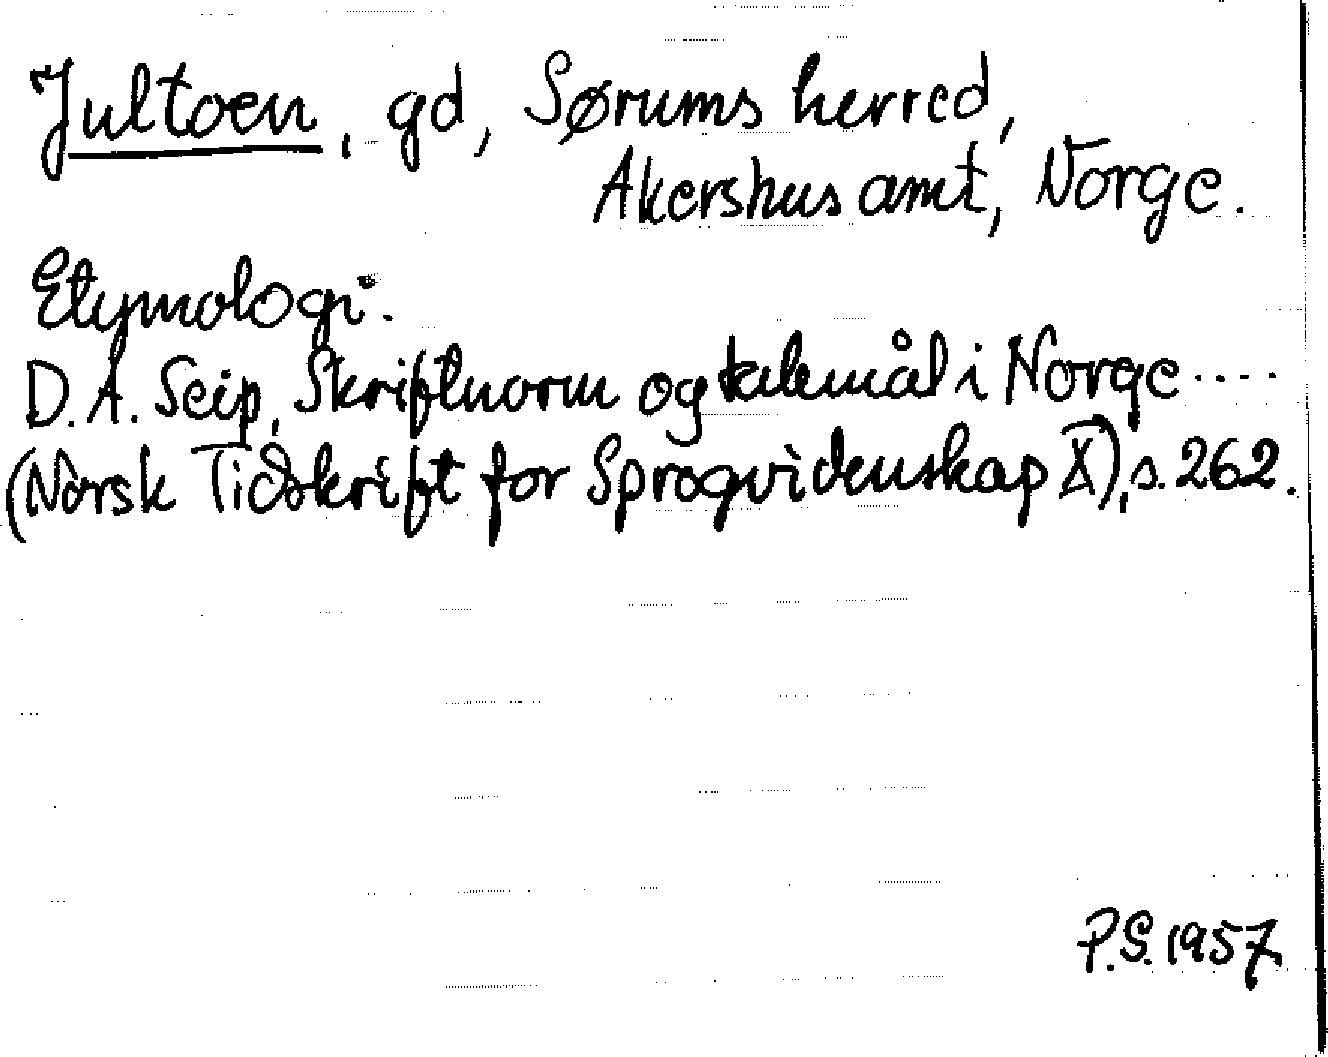 Jultoen, gd, Sørums herred,
Akershus amt, Norge.
Etymologi:
D. A. Seip, Skriftnorm og talemål i Norge ....
(Norsk Tidskrift for Sprogvidenskap X), s. 262.
P.S. 1957